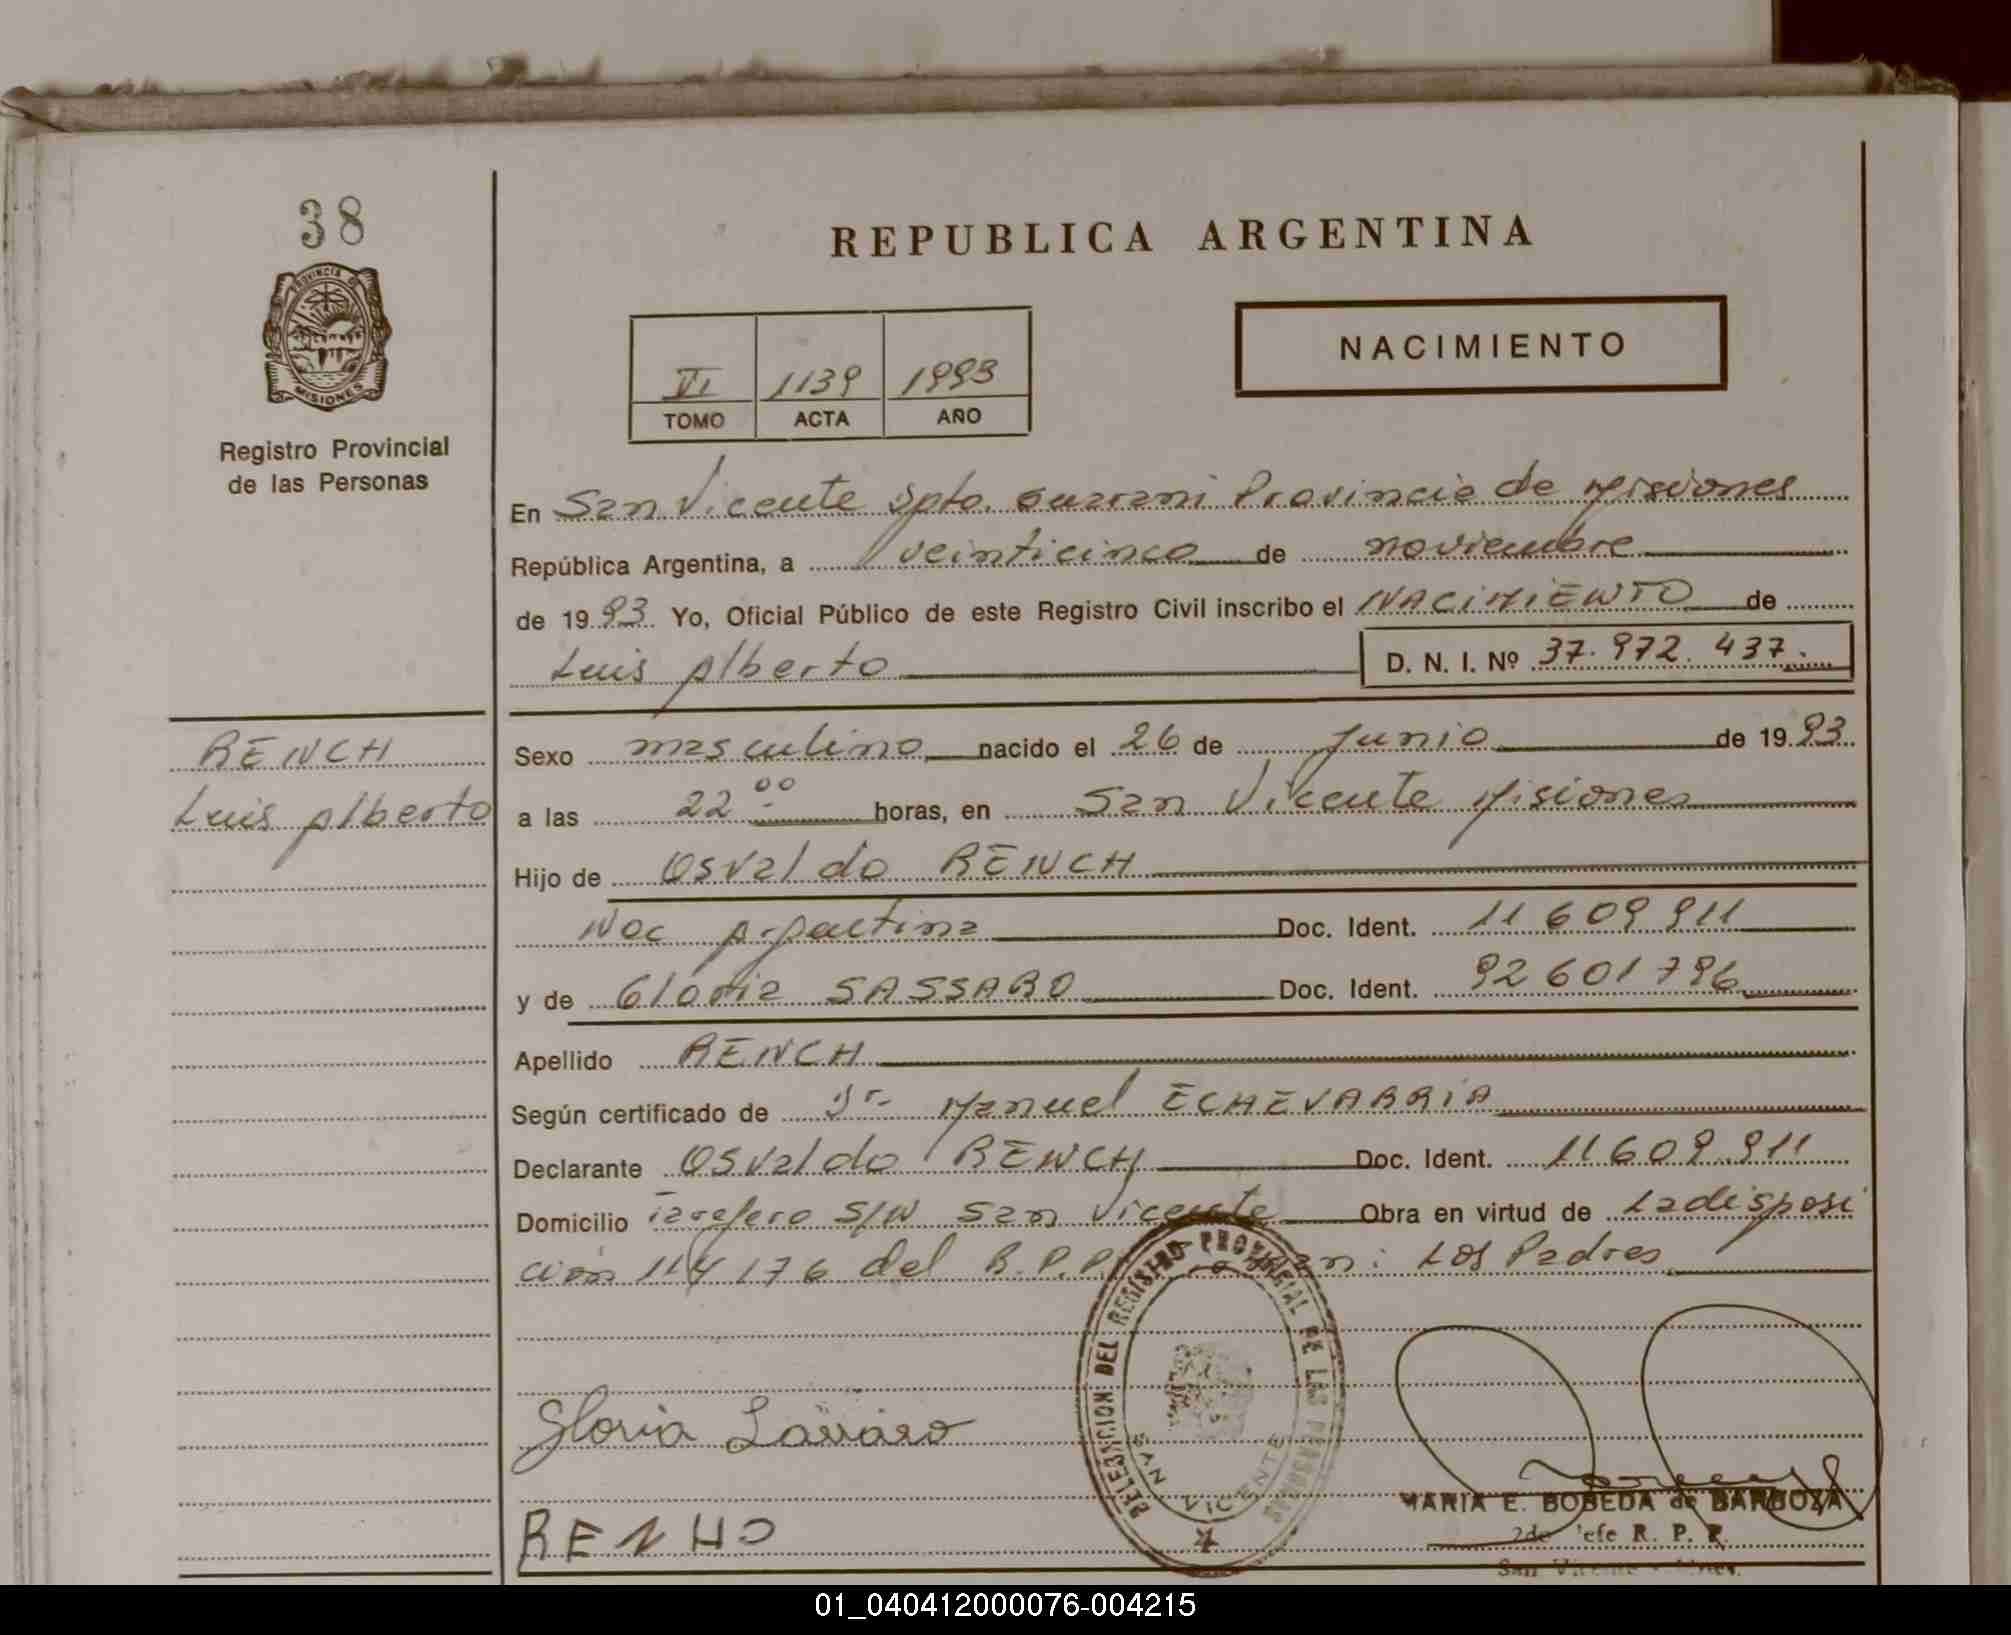 38
PROVINCIA DE
MISIONES
Registro Provincial
de las Personas
REPUBLICA ARGENTINA
NACIMIENTO
VI 1139 1993
TOMO ACTA AÑO
En San Vicente Dpto. Guarani Provincia de Misiones
República Argentina, a veinticinco de noviembre
de 1993 Yo, Oficial Público de este Registro Civil inscribo el NACIMIENTO de
Luis Alberto D. N. I. Nº 37.972.437.
RENCH
Luis Alberto
Sexo masculino nacido el 26 de Junio de 1993
a las 22 00 horas, en San Vicente Misiones
Hijo de Osvaldo RENCH
Nac Argentina Doc. Ident. 11 609 911
y de Gloria SASSARO Doc. Ident. 92 601 796
Apellido RENCH
Según certificado de Dr Manuel ECHEVARRIA
Declarante Osvaldo RENCH Doc. Ident. 11 609.911
Domicilio Tarefero S/N San Vicente Obra en virtud de La disposi
ción 114/76 del R.P.P. Los Padres
DELEGACION DEL REGISTRO PROVINCIAL DE LAS PERSONAS
SAN VICENTE
Gloria Sassaro
RENHO
MARIA E. BOBEDA de BARBOZA
2do Jefe R. P. P.
San Vicente
01_040412000076-004215